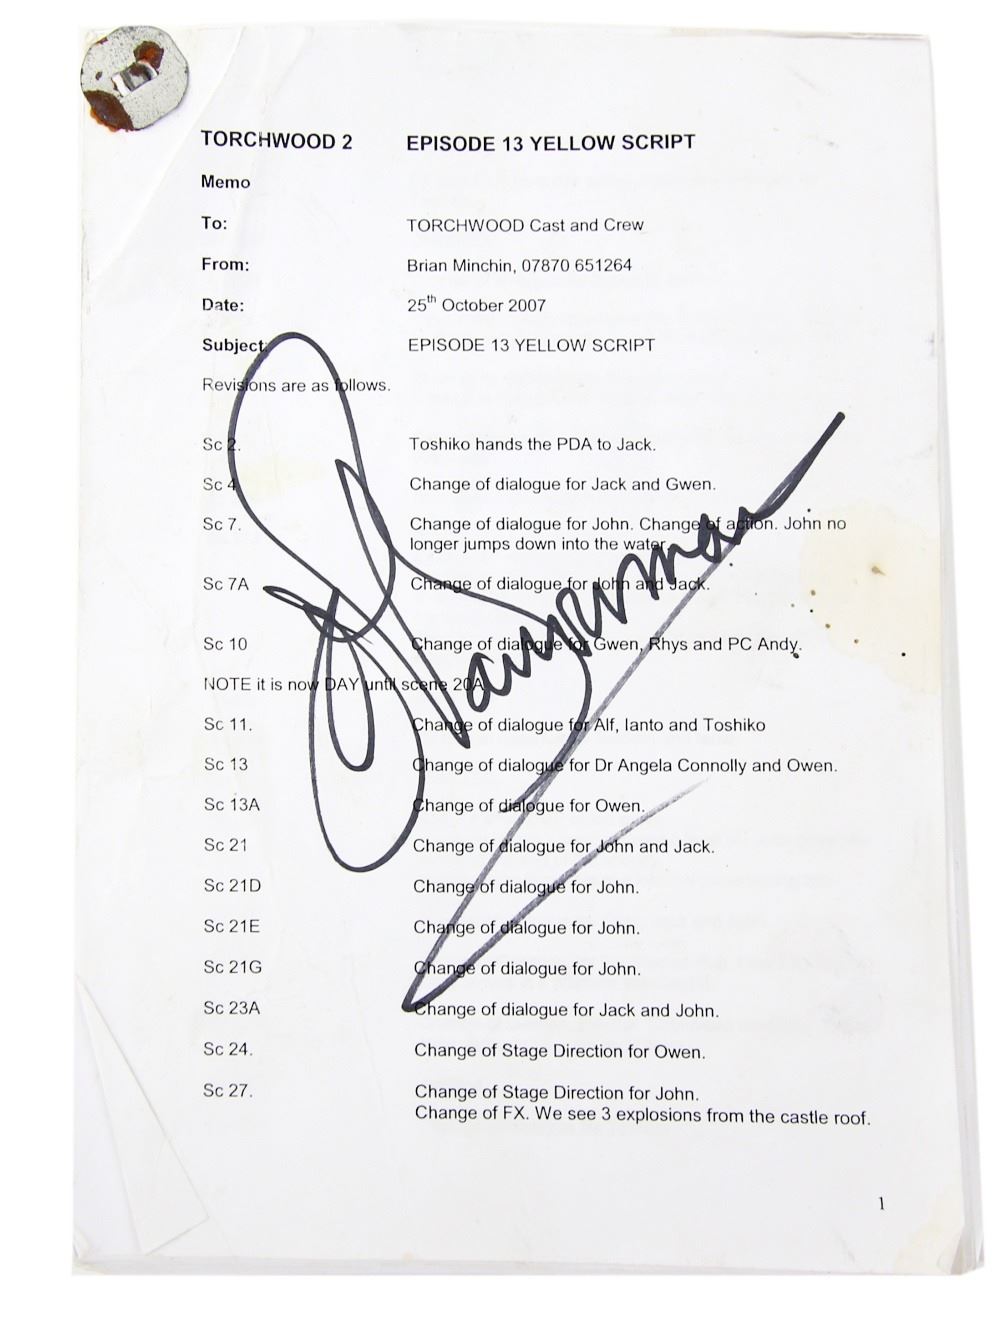 TORCHWOOD 2 EPISODE 13 YELLOW SCRIPT
Memo
To: TORCHWOOD Cast and Crew
From: Brian Minchin, 07870 651264
Date: 25th October 2007
Subject: EPISODE 13 YELLOW SCRIPT
Revisions are as follows.
Sc 2. Toshiko hands the PDA to Jack.
Sc 4 Change of dialogue for Jack and Gwen.
Sc 7. Change of dialogue for John. Change of action. John no
longer jumps down into the water.
Sc 7A Change of dialogue for John and Jack.
Sc 10 Change of dialogue for Gwen, Rhys and PC Andy.
NOTE it is now DAY until scene 20A
Sc 11. Change of dialogue for Alf, Ianto and Toshiko
Sc 13 Change of dialogue for Dr Angela Connolly and Owen.
Sc 13A Change of dialogue for Owen.
Sc 21 Change of dialogue for John and Jack.
Sc 21D Change of dialogue for John.
Sc 21E Change of dialogue for John.
Sc 21G Change of dialogue for John.
Sc 23A Change of dialogue for Jack and John.
Sc 24. Change of Stage Direction for Owen.
Sc 27. Change of Stage Direction for John.
Change of FX. We see 3 explosions from the castle roof.
1